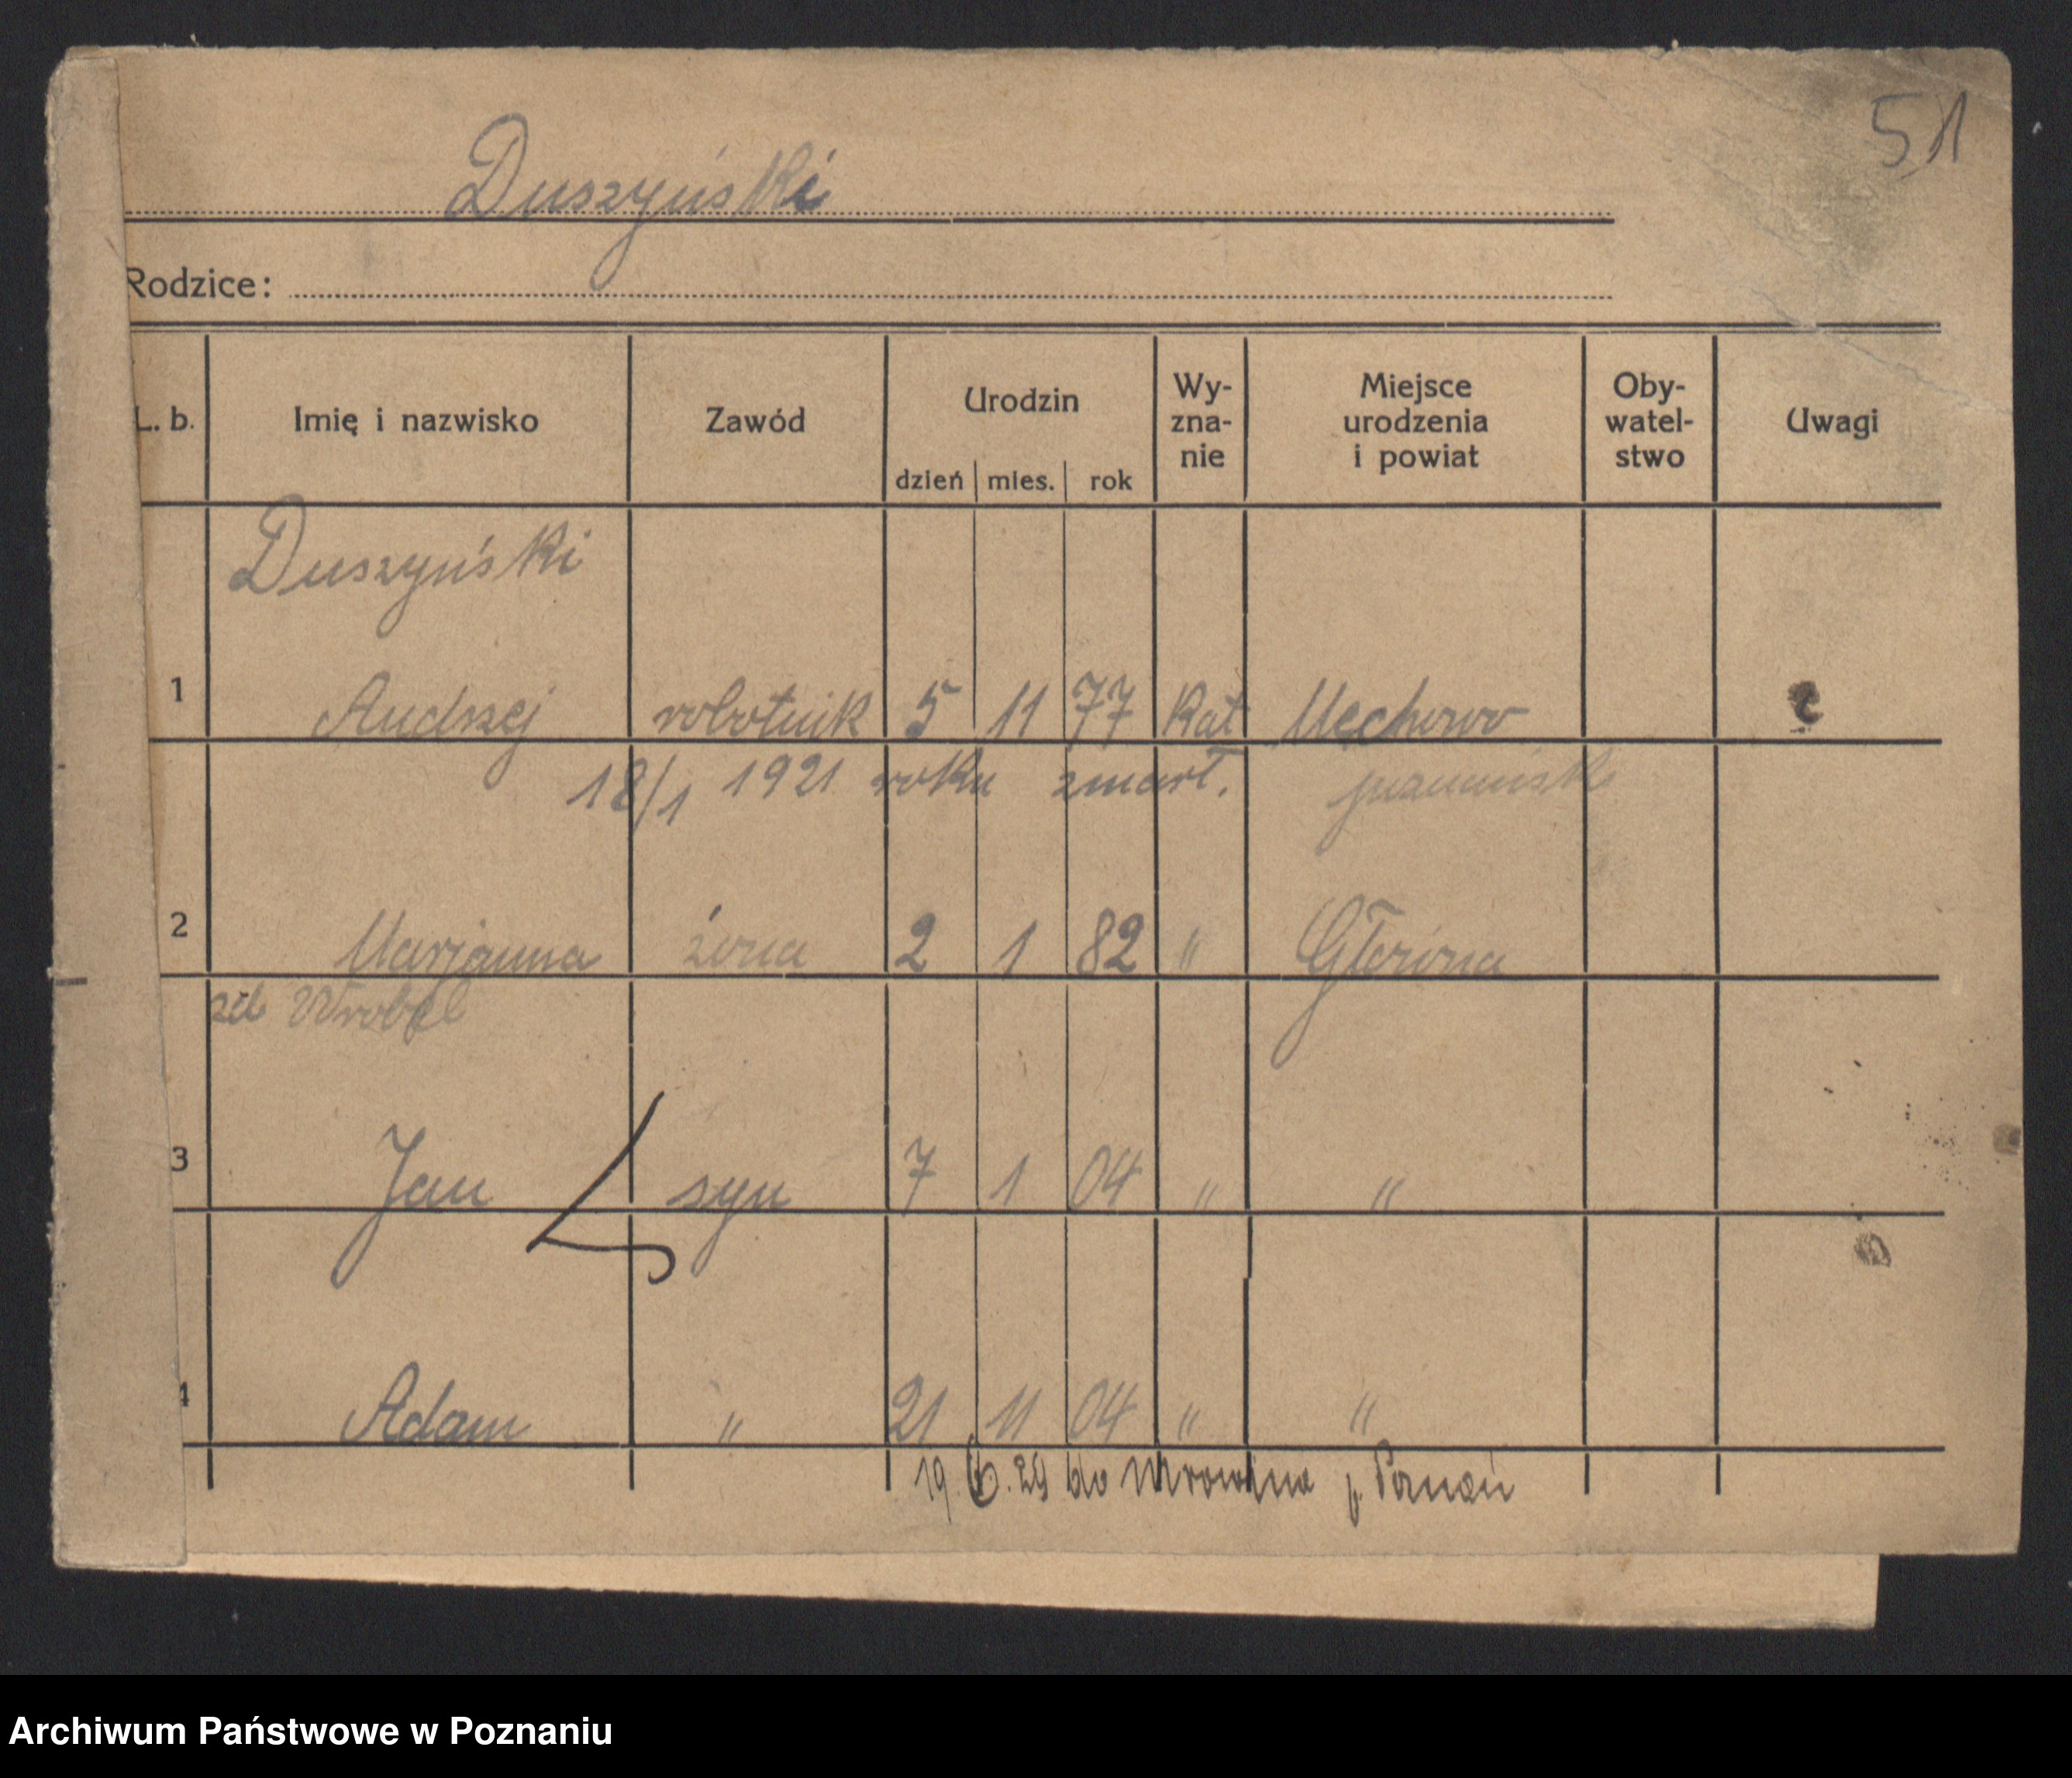 51
Duszyński
Rodzice:
L. b. Imię i nazwisko Zawód Urodzin dzień mies. rok Wy-zna-nie Miejsce urodzenia i powiat Oby-watel-stwo Uwagi
Duszyński
1 Andrzej robotnik 5 11 77 Kat Mechowo
18/1 1921 roku zmarł.
2 Marjanna żona 2 1 82 "
Wrobel
3 Jan syn 7 1 04 " "
4 Adam " 21 11 04 " "
19. 29 do Mrowina p. Poznań
Archiwum Państwowe w Poznaniu